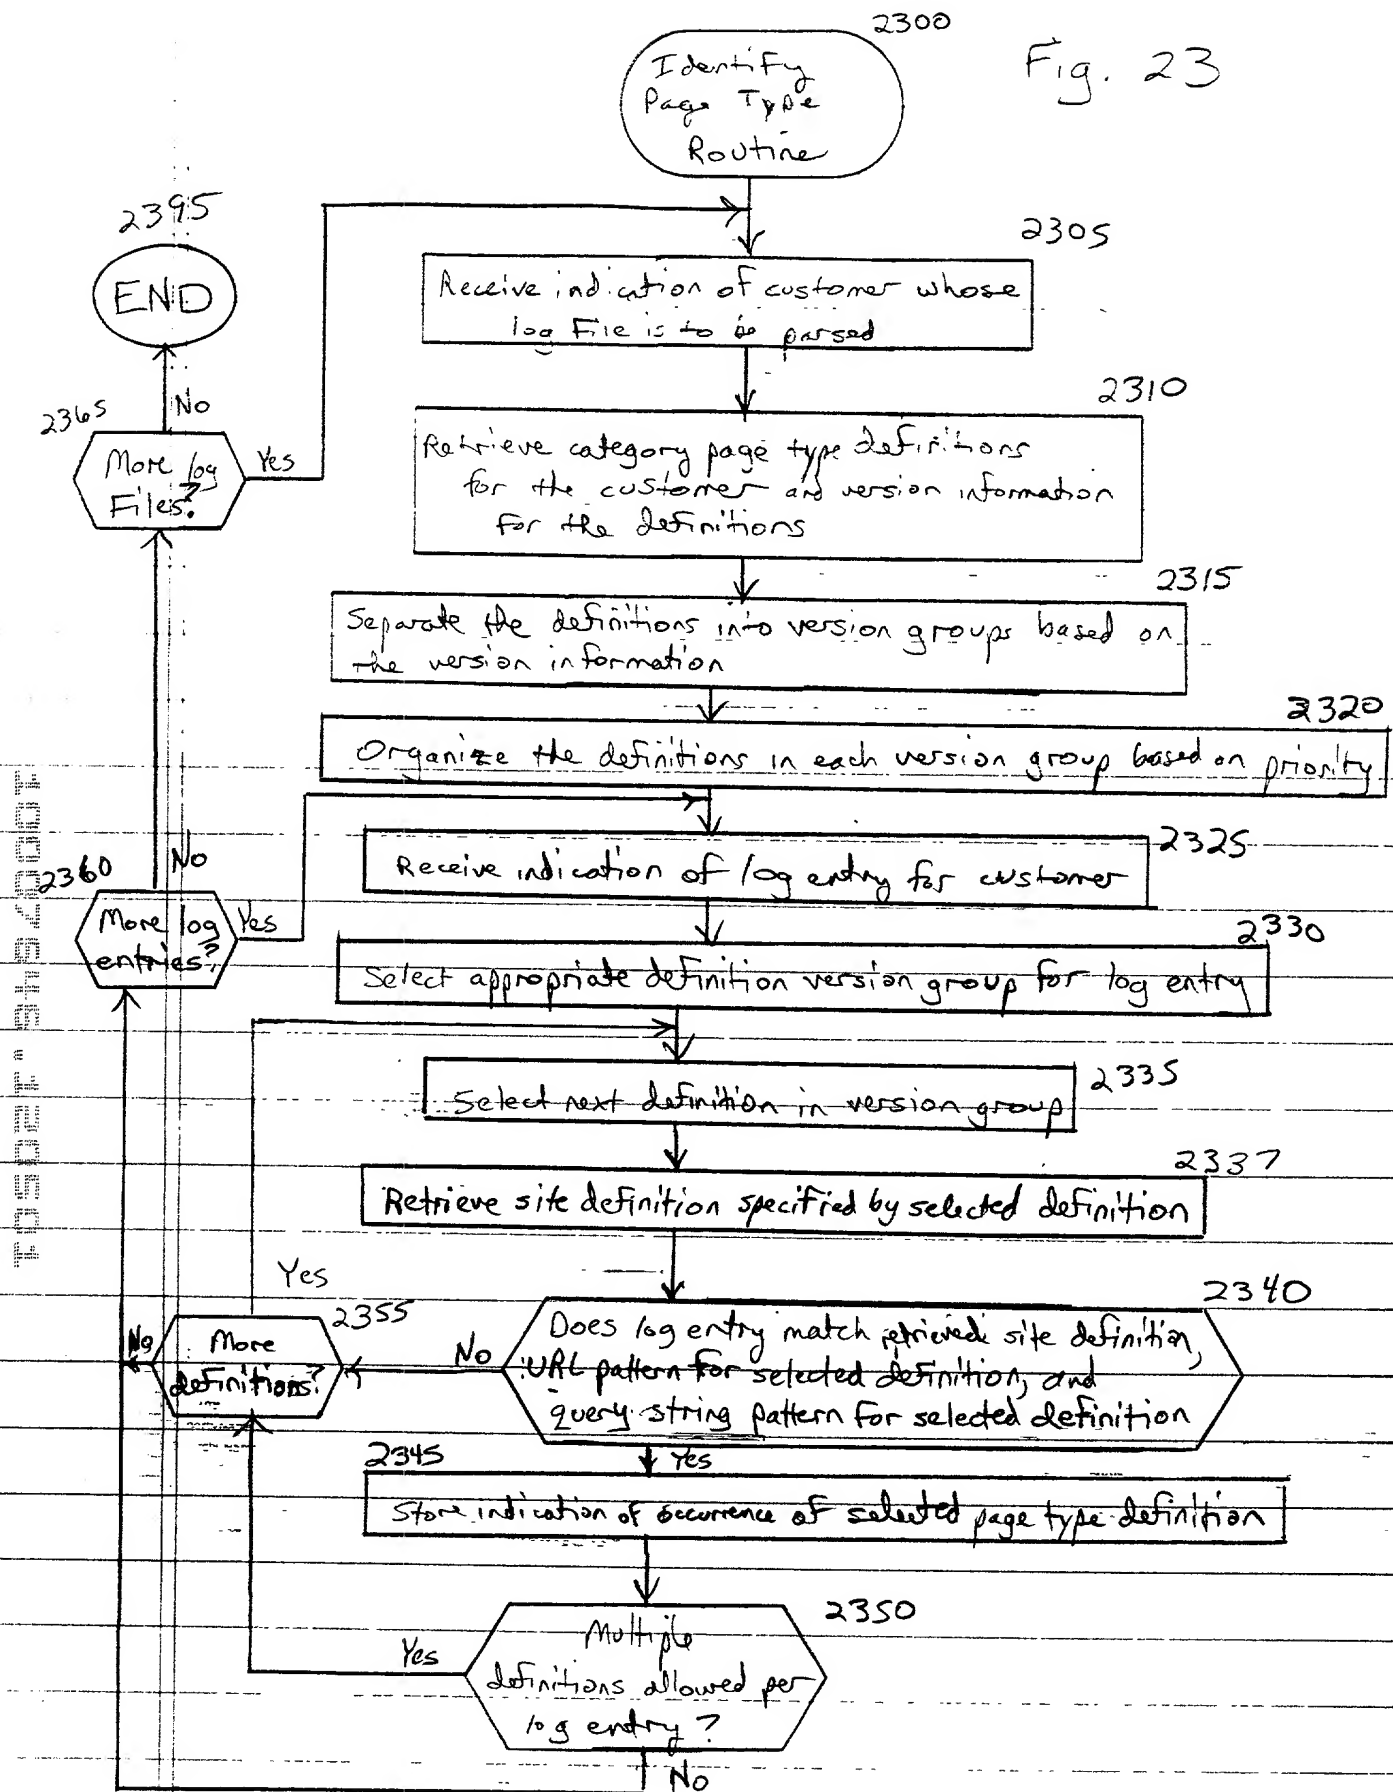 2300
Fig. 23
Identify
Page Type
Routine
2395
END
2305
Receive indication of customer whose
log File is to be parsed
No
2365
More log
Files?
Yes
2310
Retrieve category page type definitions
for the customer and version information
for the definitions
2315
Separate the definitions into version groups based on
the version information
2320
Organize the definitions in each version group based on priority
No
2325
Receive indication of log entry for customer
2360
More log
entries?
Yes
2330
Select appropriate definition version group for log entry
2335
Select next definition in version group
2337
Retrieve site definition specified by selected definition
Yes
2355
More
definitions?
No
No
2340
Does log entry match retrieved site definition,
URL pattern for selected definition, and
query string pattern for selected definition
Yes
2345
Store indication of occurrence of selected page type definition
2350
Multiple
definitions allowed per
log entry?
Yes
No